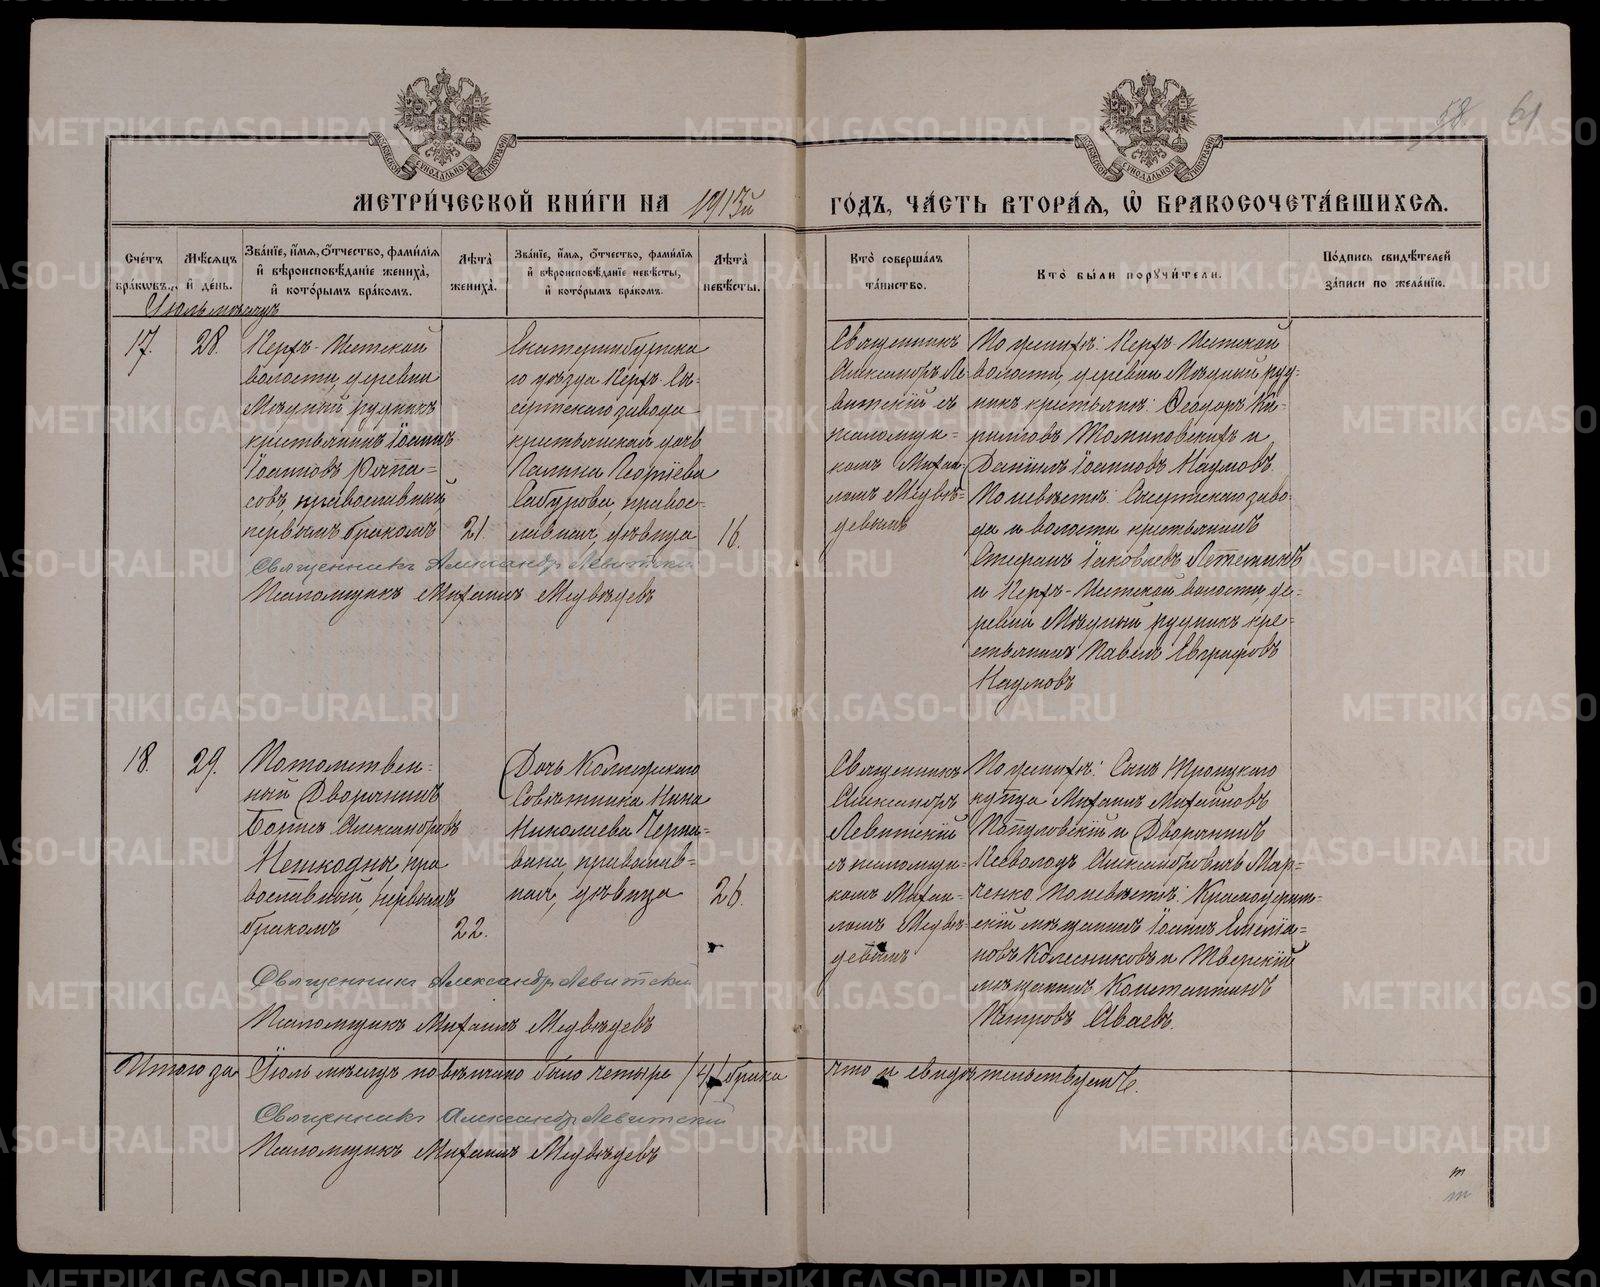 58 61
МОСКОВСКОЙ СѴНОДАЛЬНОЙ ТИПОГРАФІИ
МОСКОВСКОЙ СѴНОДАЛЬНОЙ ТИПОГРАФІИ
МЕТРИ́ЧЕСКОЙ КНИ́ГИ НА 1913й ГО́ДЪ, ЧА́СТЬ ВТОРА́Я, Ѡ҆ БРАКОСОЧЕТА́ВШИХСЯ.
Сче́тъ бра́ковъ.
Мѣ́сяцъ и҆ де́нь.
Зва́нїе, и҆́мя, ѻ҆́тчество, фами́лїя и҆ вѣроисповѣ́данїе жениха̀, и҆ кото́рымъ бра́комъ.
Лѣ́та̀ жениха̀.
Зва́нїе, и҆́мя, ѻ҆́тчество, фами́лїя и҆ вѣроисповѣ́данїе невѣ́сты, и҆ кото́рымъ бра́комъ.
Лѣ́та̀ невѣ́сты.
Кто̀ соверша́лъ та́инство.
Кто̀ бы́ли порꙋчи́тели.
По́дпись свидѣ́телей за́писи по жела́нїю.
Іюль мѣсяцъ
17. 28.
Верхъ-Исетской
волости, деревни
Мѣдный рудникъ
крестьянинъ Іоаннъ
Іоанновъ
совъ, православный
первымъ бракомъ
21.
Екатеринбургска
го уѣзда Верхъ-Сы-
сертскаго завода
крестьянская дочь
Георгіева
Сабурова, правос-
лавная, дѣвица
16.
Священникъ
Александръ Ле-
витскій съ
псаломщи-
комъ Михаи-
ломъ Медвѣ-
девымъ
По женихѣ: Верхъ-Исетской
волости, деревни Мѣдный руд-
никъ крестьянинъ: Ѳеодоръ Ки-
рилловъ и
Даніилъ Іоанновъ Наумовъ.
По невѣстѣ: Сысертскаго заво-
да и волости крестьянинъ
Стефанъ Іаковлевъ
и Верхъ-Исетской волости, де-
ревни Мѣдный рудникъ кре-
стьянинъ Павелъ Евграфовъ
Наумовъ
Священникъ Александръ Левитскій
Псаломщикъ Михаилъ Медвѣдевъ
18. 29.
Потомствен-
ный Дворянинъ
Борисъ Александровъ
пра
вославный, первымъ
бракомъ
22.
Дочь Коллежскаго
Совѣтника Нина
Николаева Черка-
вана, православ-
ная, дѣвица
26.
Священникъ
Александръ
Левитскій
съ псаломщи-
комъ Михаи-
ломъ Медвѣ-
девымъ
По женихѣ: Сынъ Троицкаго
купца Михаилъ Михайловъ
и Дворянинъ
Всеволодъ Александровичъ Мар-
ченко. По невѣстѣ: Красноуфим-
скій мѣщанинъ Іоаннъ Емелья-
новъ Колесниковъ и Тверскій
мѣщанинъ Константинъ
Петровъ Аваевъ.
Священникъ Александръ Левитскій
Псаломщикъ Михаилъ Медвѣдевъ
Итого за Іюль мѣсяцъ повѣнчано было четыре /4/ брака что и свидѣтельствуемъ.
Священникъ Александръ Левитскій
Псаломщикъ Михаилъ Медвѣдевъ
METRIKI.GASO-URAL.RU